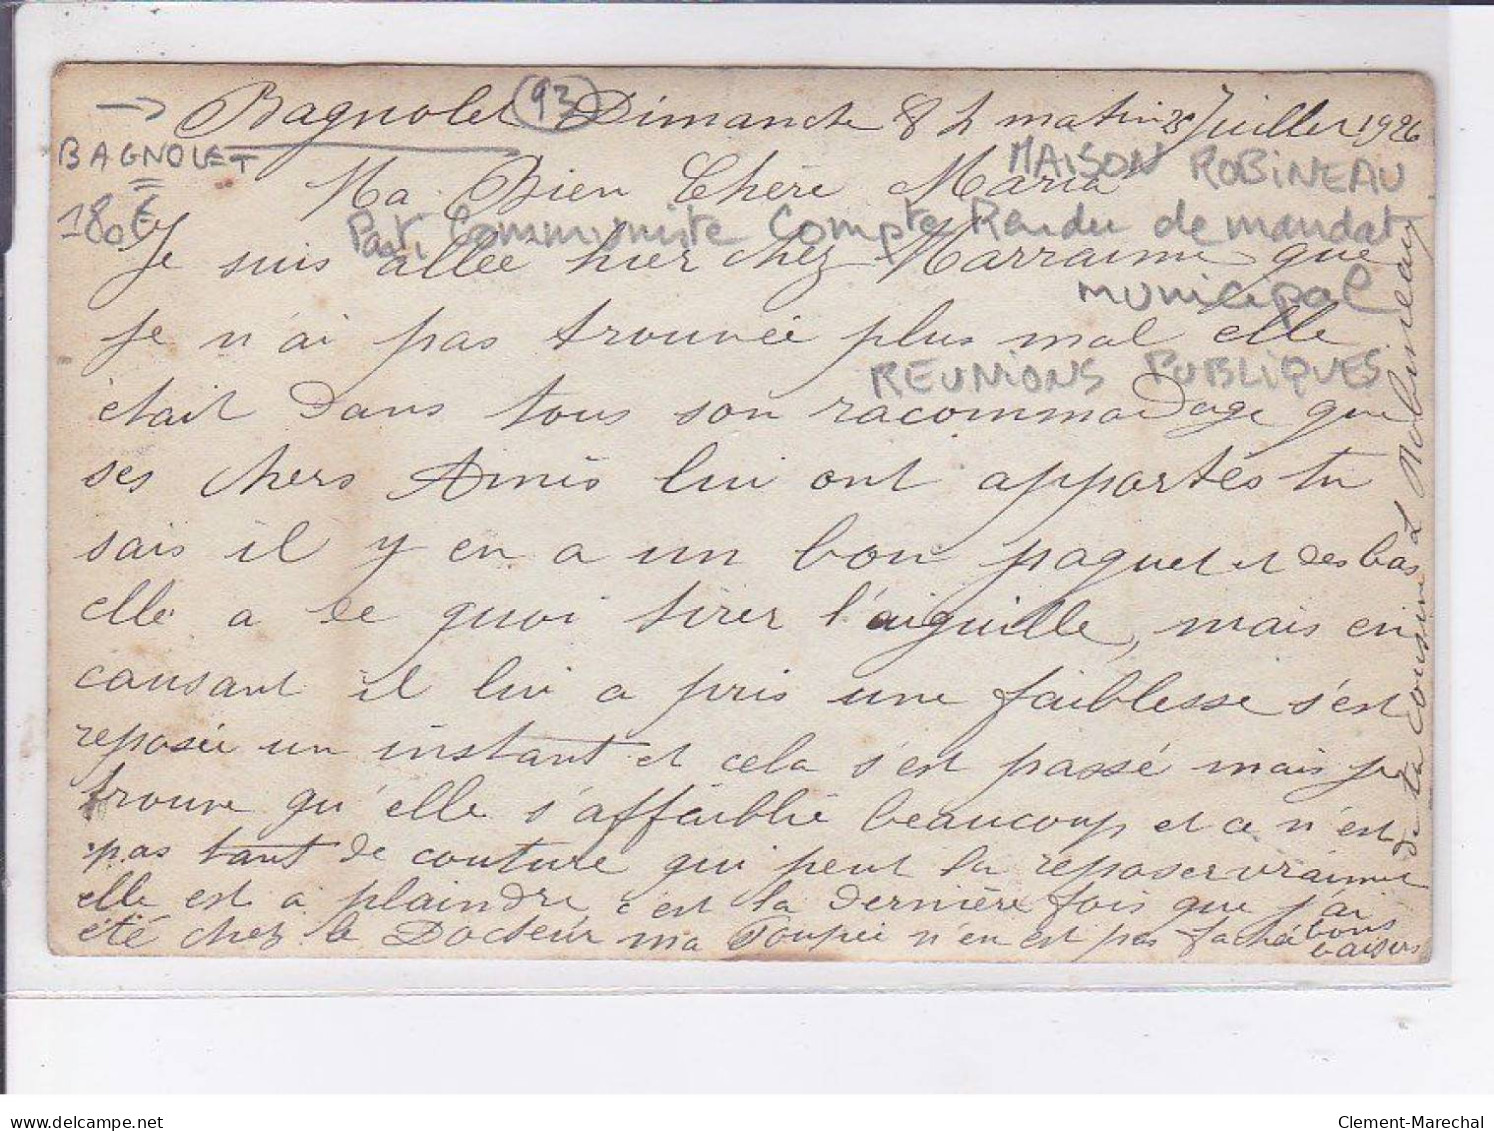 → Bagnolet (93) Dimanche 8 h matin 25 Juillet 1926
BAGNOLET
MAISON ROBINEAU
Ma Bien Chère Maria
180€
Parti Communiste Compte Rendu de mandat
Je suis allée hier chez Marraine que
municipal
je n'ai pas trouvée plus mal elle
REUNIONS PUBLIQUES
était dans tous son racommodage que
ses chers Amis lui ont apportés tu
sais il y en a un bon paquet et des bas
elle a de quoi tirer l'aiguille, mais en
causant il lui a pris une faiblesse s'est
reposée un instant et cela s'est passé mais je
trouve qu'elle s'affaiblie beaucoup et ce n'est
pas tant de couture qui peut la reposer vraiment
elle est à plaindre, c'est la dernière fois que j'ai
été chez le Docteur ma Poupée n'en est pas fachée
bons
baisers
de ta cousine L Robineau
delcampe.net
Clement-Marechal